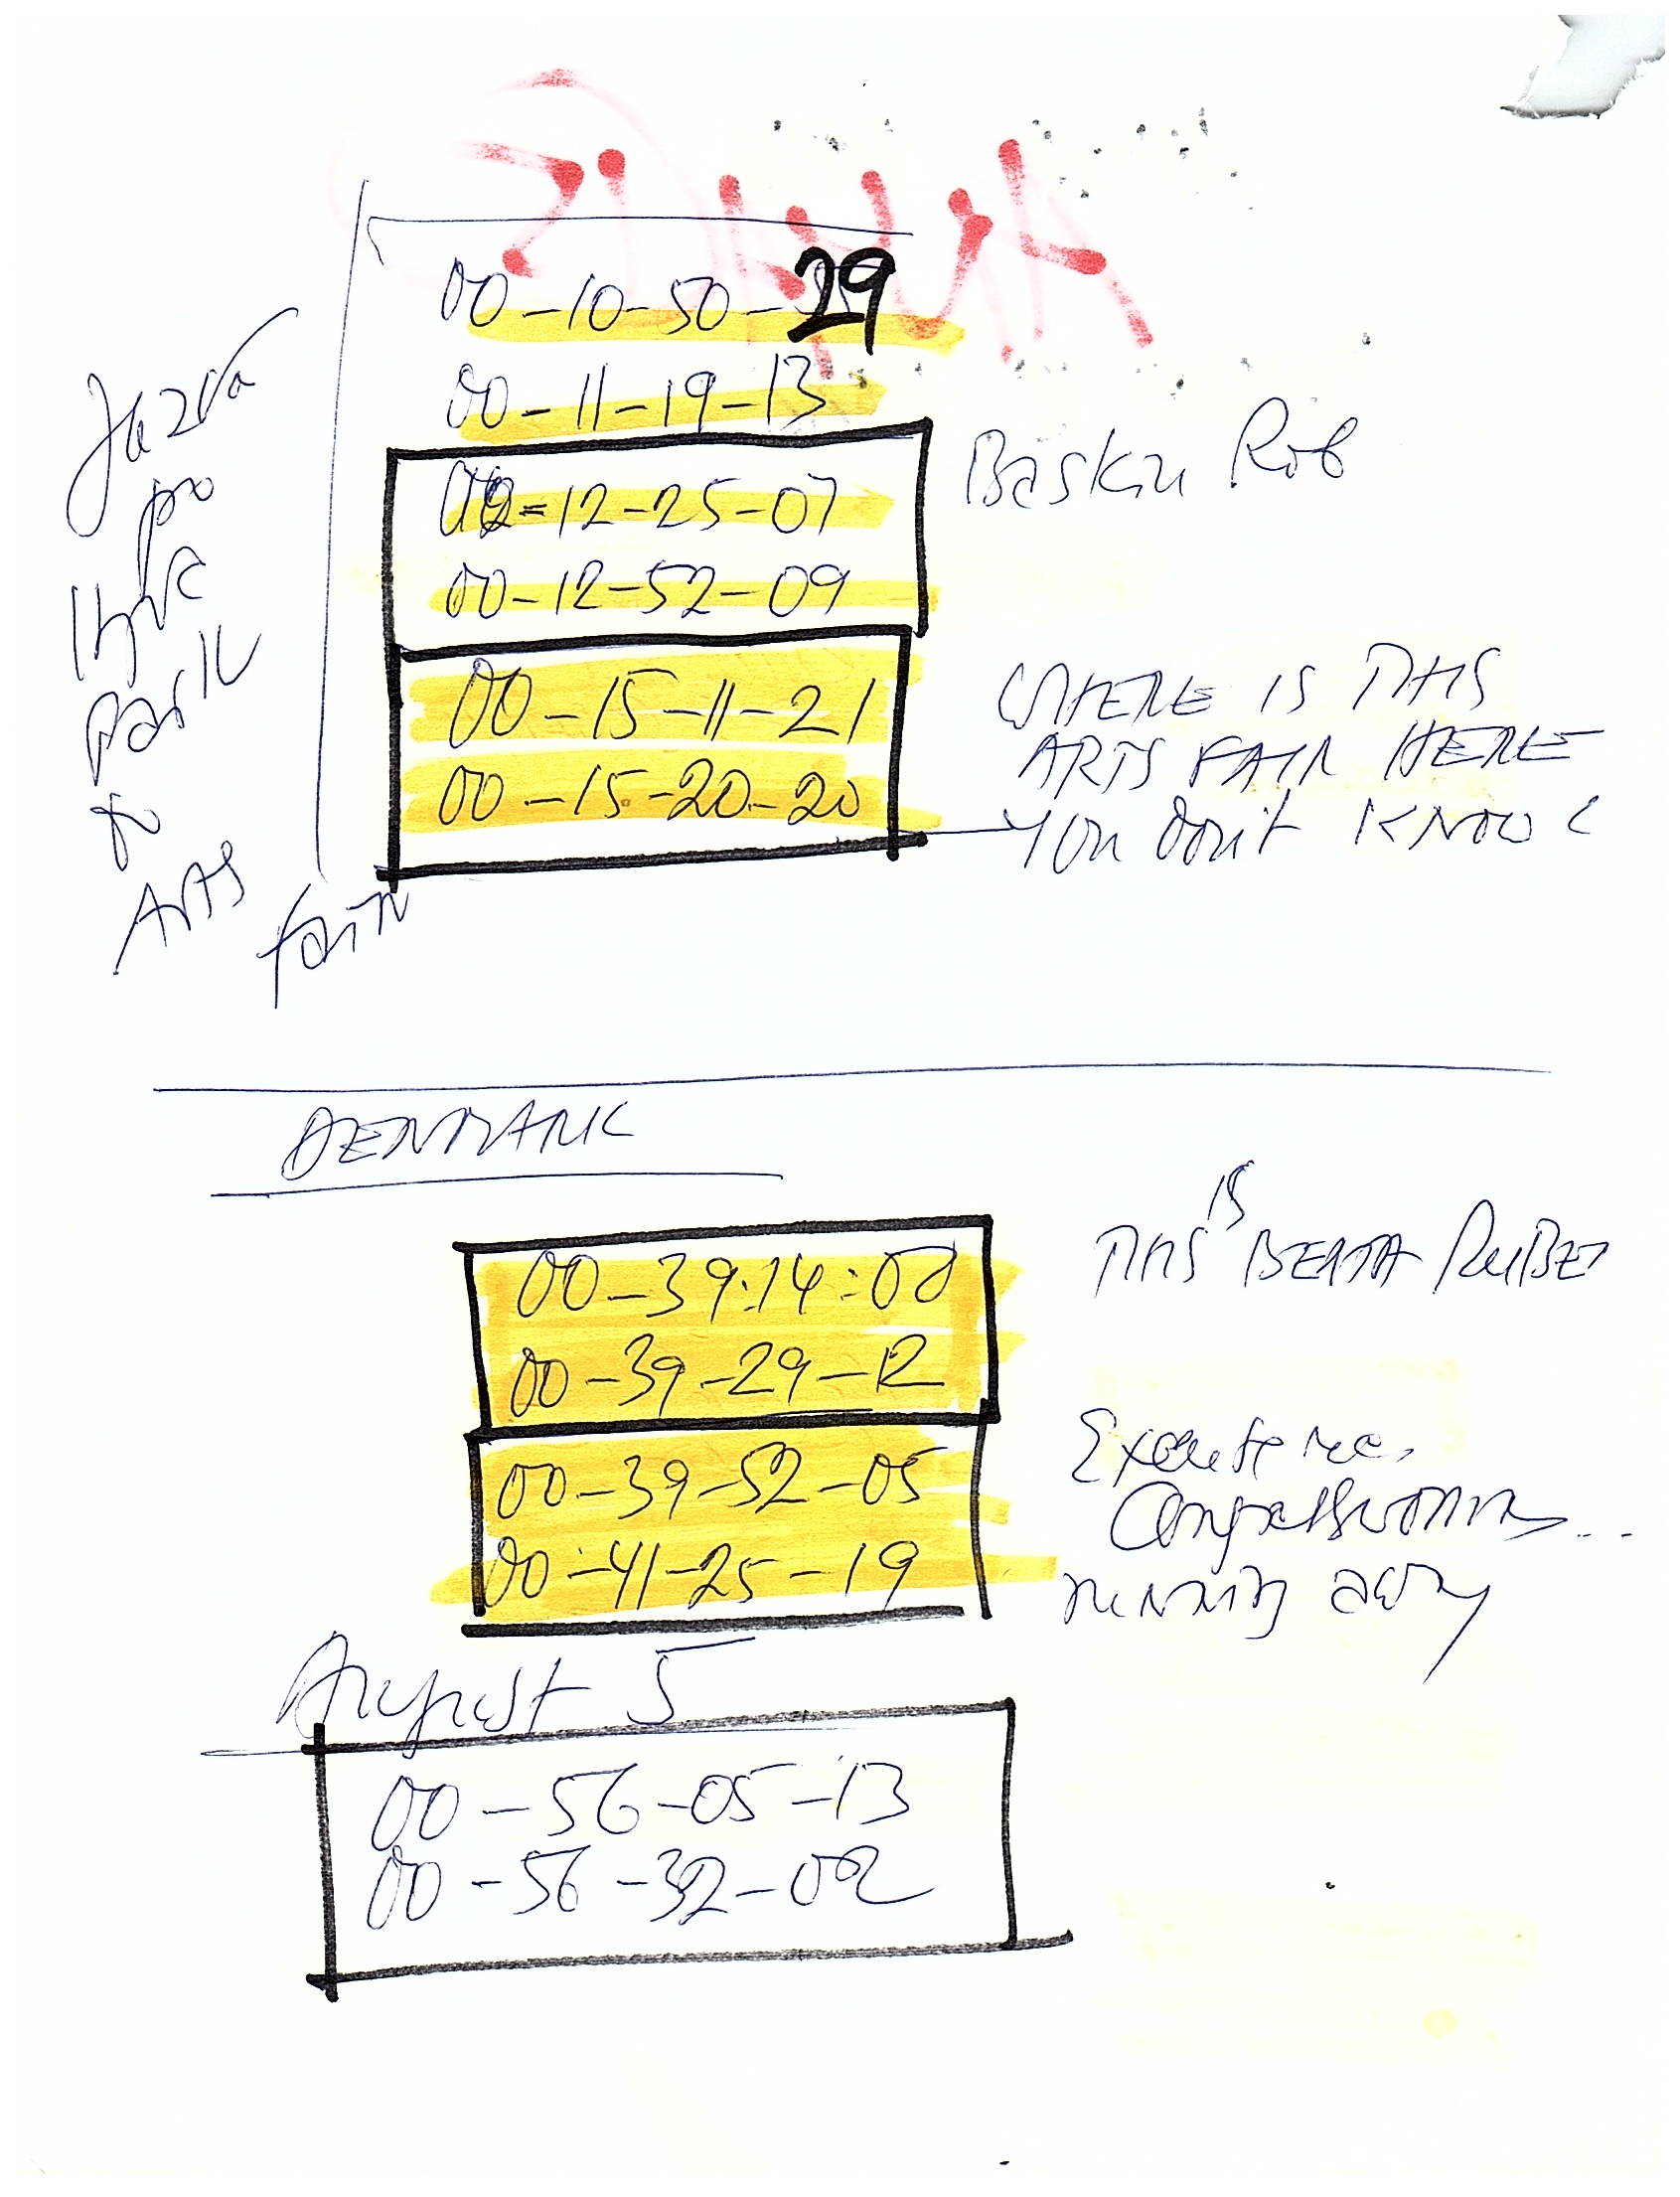 00-10-50-29
00-11-19-13
00-12-25-07
Baskin Rob
00-12-52-09
00-15-11-21
00-15-20-20
WHERE IS THIS
ARTS FAIR HERE
YOU don't KNOW
po
Park
to
ARTS
fair
DENMARK
THIS IS BERTA
00-39:14:08
00-39-29-12
00-39-52-05
00-41-25-19
running away
August 5
00-56-05-13
00-56-32-02